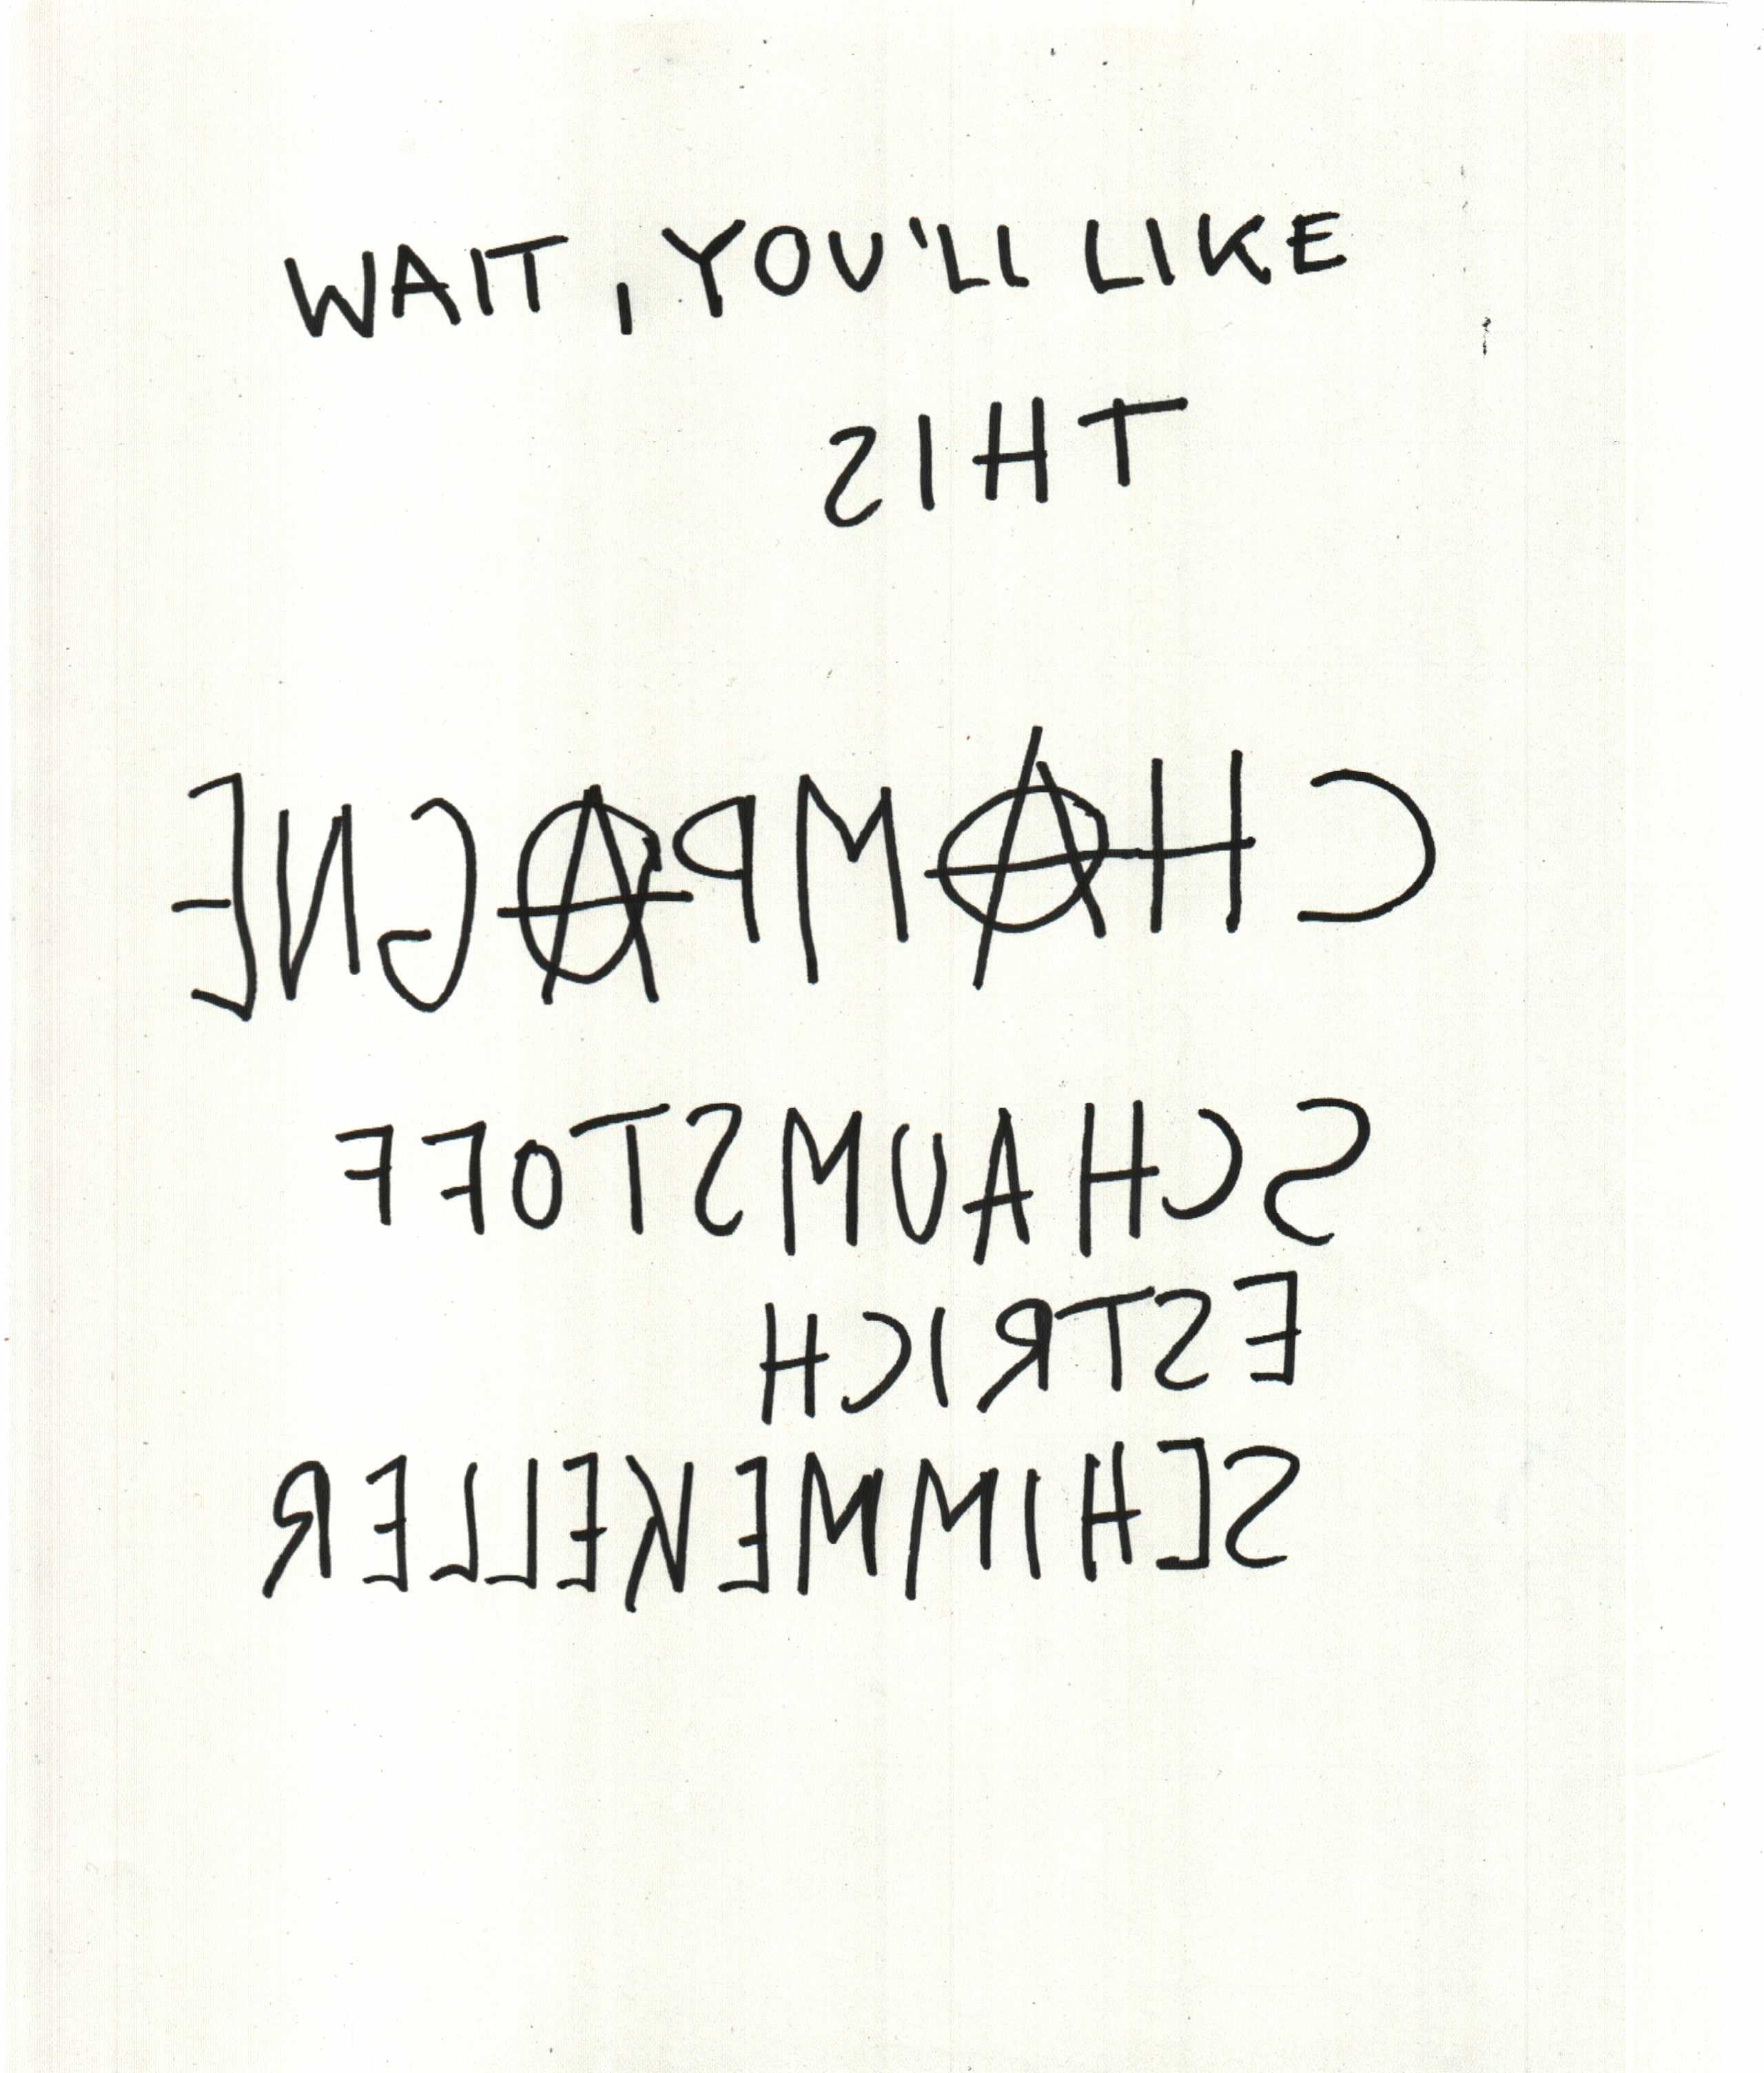 WAIT, YOU'LL LIKE
THIS
CHAMPAGNE
SCHAUMSTOFF
ESTRICH
SCHIMMEKELLER